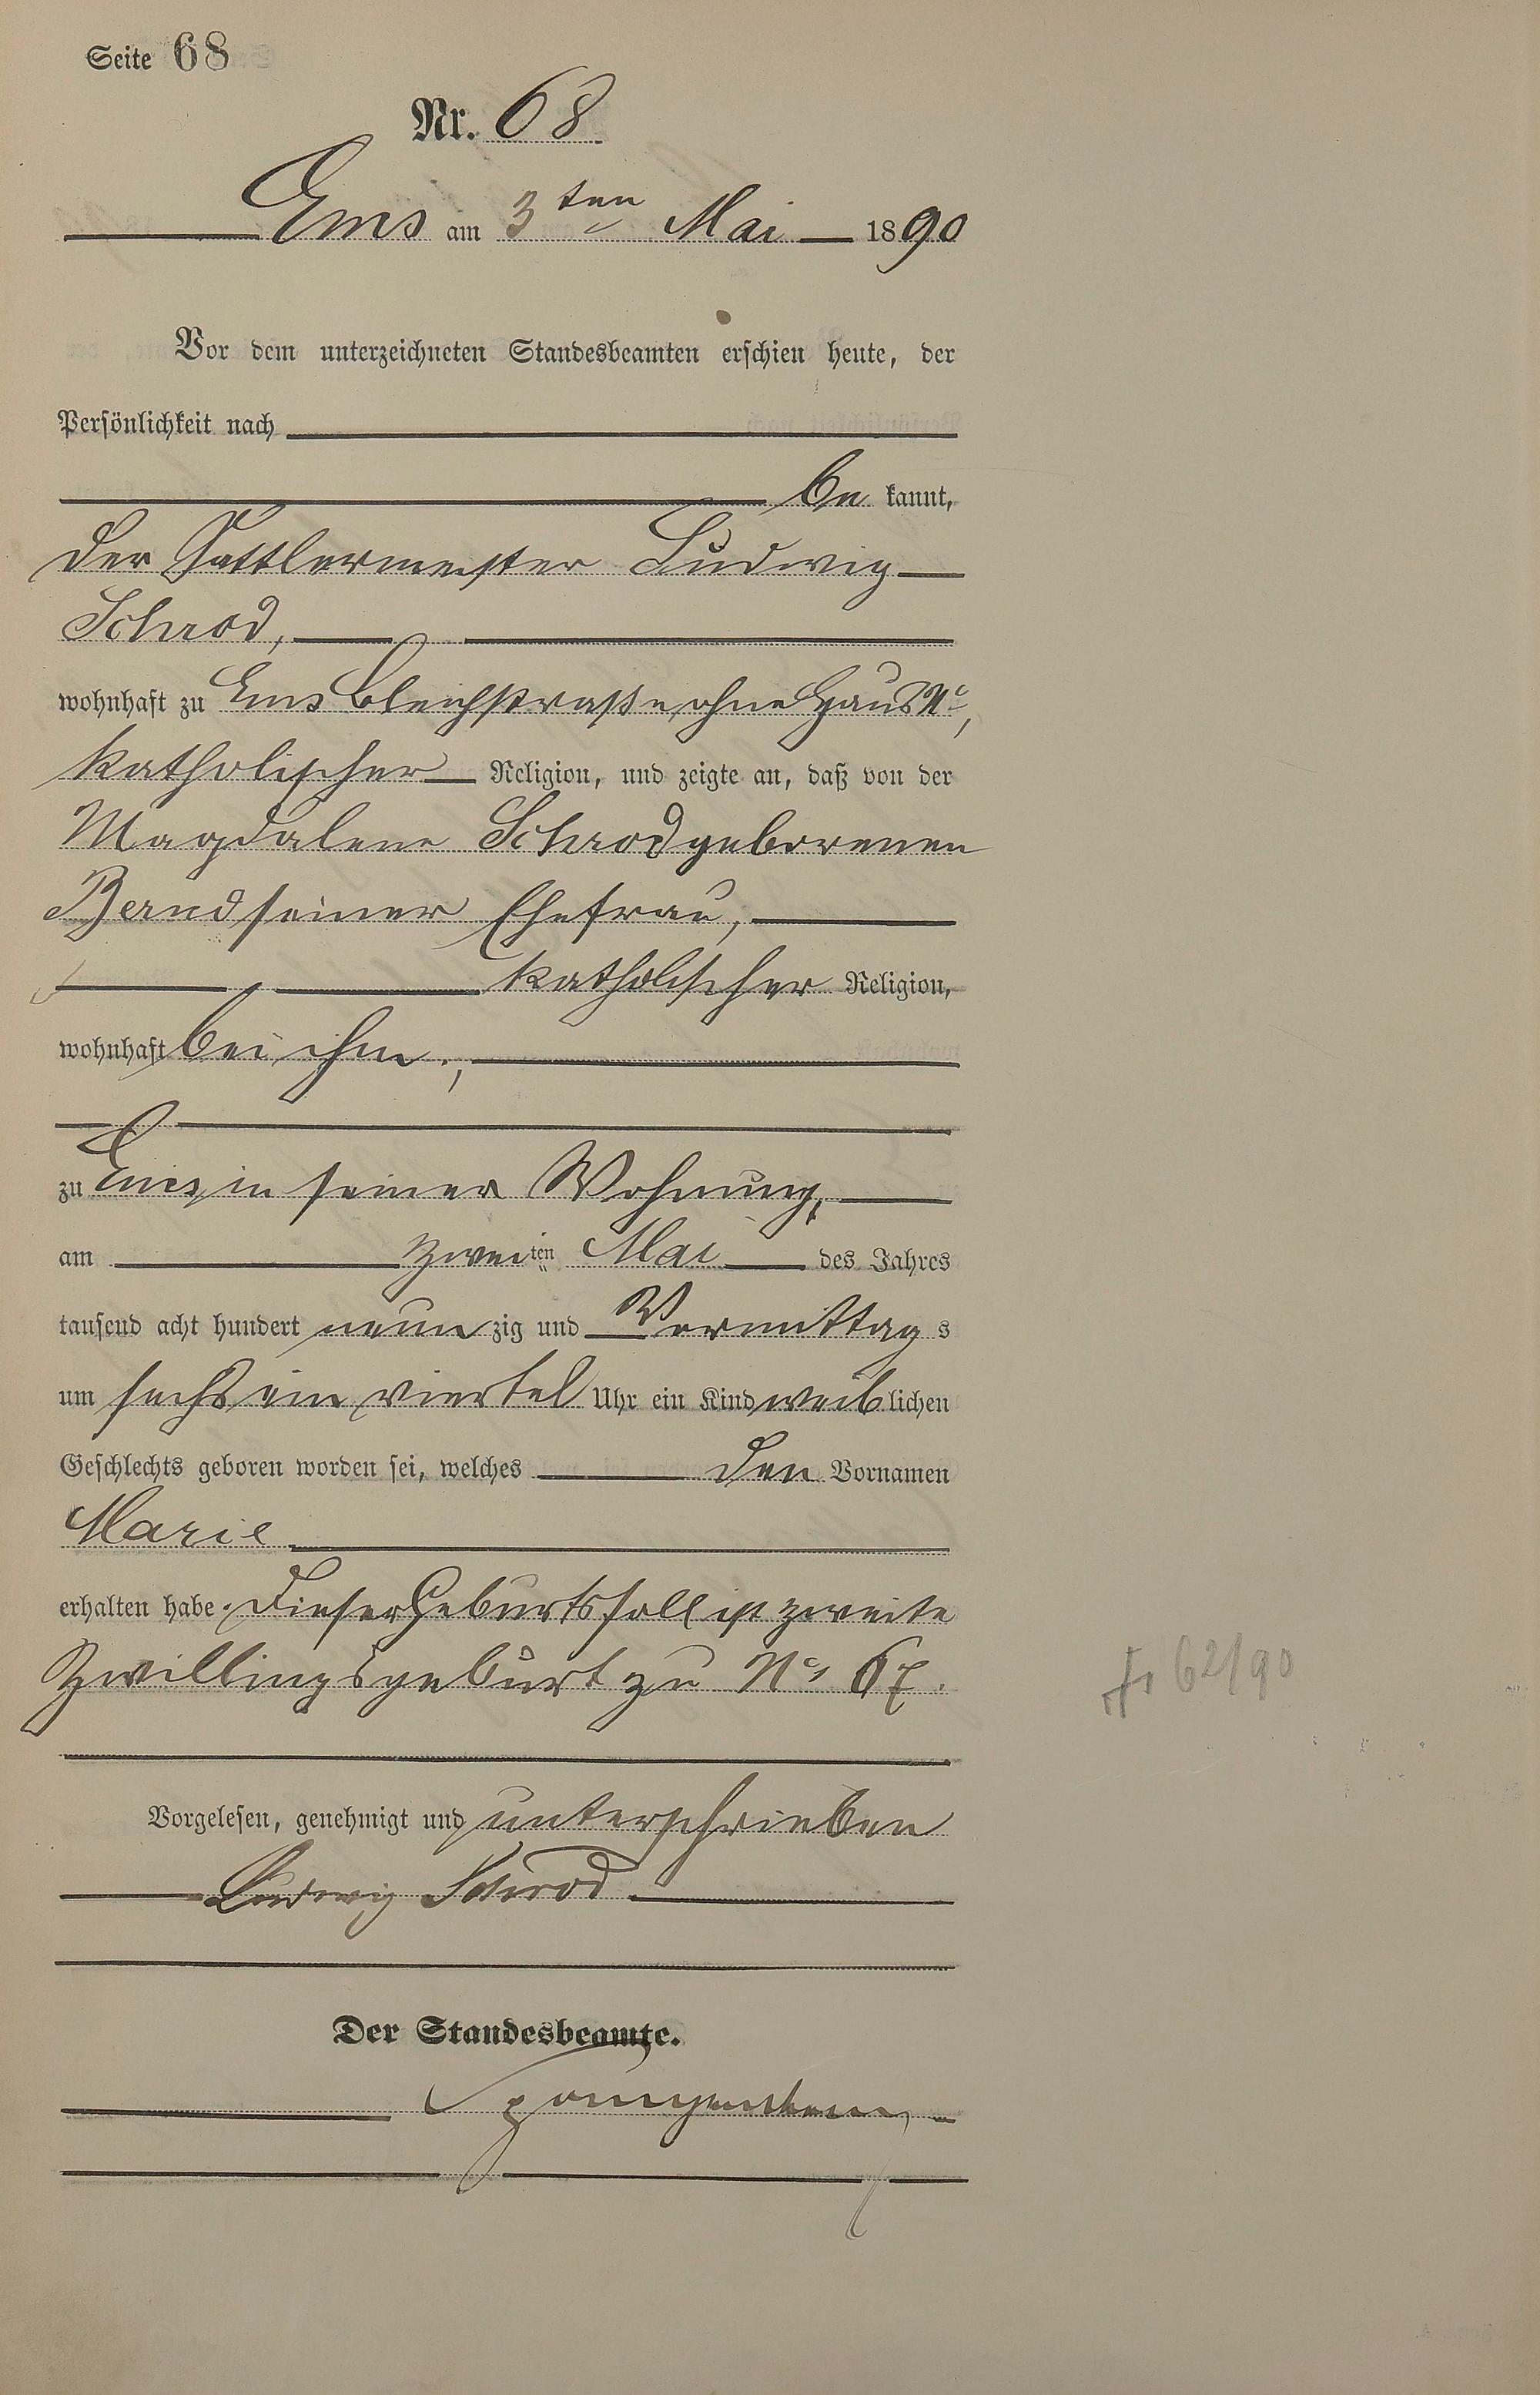 Seite 68
Nr. 68
Ems am 3ten Mai 1890
Vor dem unterzeichneten Standesbeamten erschien heute, der
Persönlichkeit nach
be kannt,
der Sattlermeister Ludwig
Schrod,
wohnhaft zu Ems Bleichstraße ohne Haus No,
katholischer Religion, und zeigte an, daß von der
Magdalene Schrod geborenen
Bernd seiner Ehefrau,
katholischer Religion,
wohnhaft bei ihm,
zu Ems in seiner Wohnung,
am zweiten Mai des Jahres
tausend acht hundert neun zig und Vormittags
um sechs ein viertel Uhr ein Kind weiblichen
Geschlechts geboren worden sei, welches den Vornamen
Marie
erhalten habe. Dieser Geburtsfall ist zweite
Zwillingsgeburt zu No 67.
62/90
Vorgelesen, genehmigt und unterschrieben
Ludwig Schrod
Der Standesbeamte.